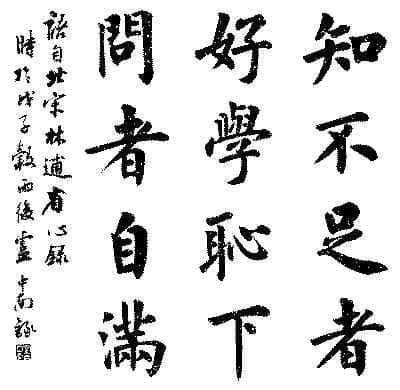 知不足者
好學恥下
問者自滿
語自北宋林逋省心錄
時於戊子穀雨後 盧中南錄